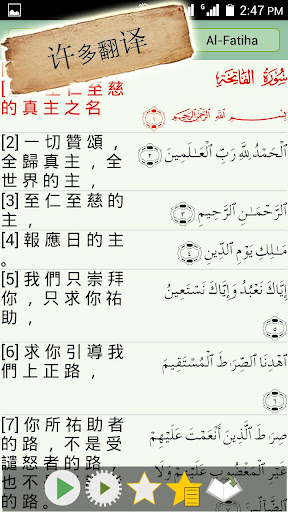 2:47 PM
许多翻译
Al-Fatiha
سُورَةُ الفَاتِحَةِ
至仁至慈
的真主之名
بِسْمِ ٱللَّهِ ٱلرَّحْمَٰنِ ٱلرَّحِيمِ ١
[2] 一切贊頌，
全歸真主，全
世界的主，
ٱلْحَمْدُ لِلَّهِ رَبِّ ٱلْعَـٰلَمِينَ ٢
[3] 至仁至慈的
主，
ٱلرَّحْمَـٰنِ ٱلرَّحِيمِ ٣
[4] 報應日的主
。
مَـٰلِكِ يَوْمِ ٱلدِّينِ ٤
[5] 我們只崇拜
你，只求你祐
助，
إِيَّاكَ نَعْبُدُ وَإِيَّاكَ نَسْتَعِينُ
٥
[6] 求你引導我
們上正路，
ٱهْدِنَا ٱلصِّرَٰطَ ٱلْمُسْتَقِيمَ
٦
[7] 你所祐助者
的路，不是受
譴怒者的路，
صِرَٰطَ ٱلَّذِينَ أَنْعَمْتَ عَلَيْهِمْ
غَيْرِ ٱلْمَغْضُوبِ عَلَيْهِمْ وَلَا
也不